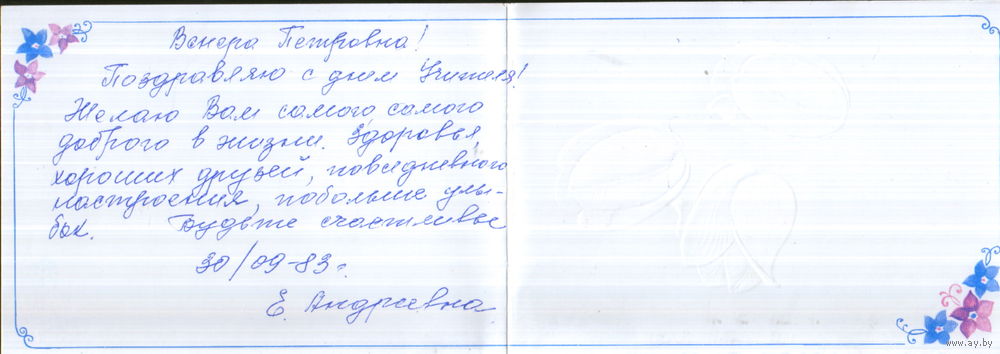 Венера Петровна!
Поздравляю с днем Учителя!
Желаю Вам самого, самого
доброго в жизни. Здоровья,
хороших друзей, повседневного
настроения, побольше улы-
бок. Будьте счастливы
30/09-83 г.
Е. Андреевна
www.ay.by